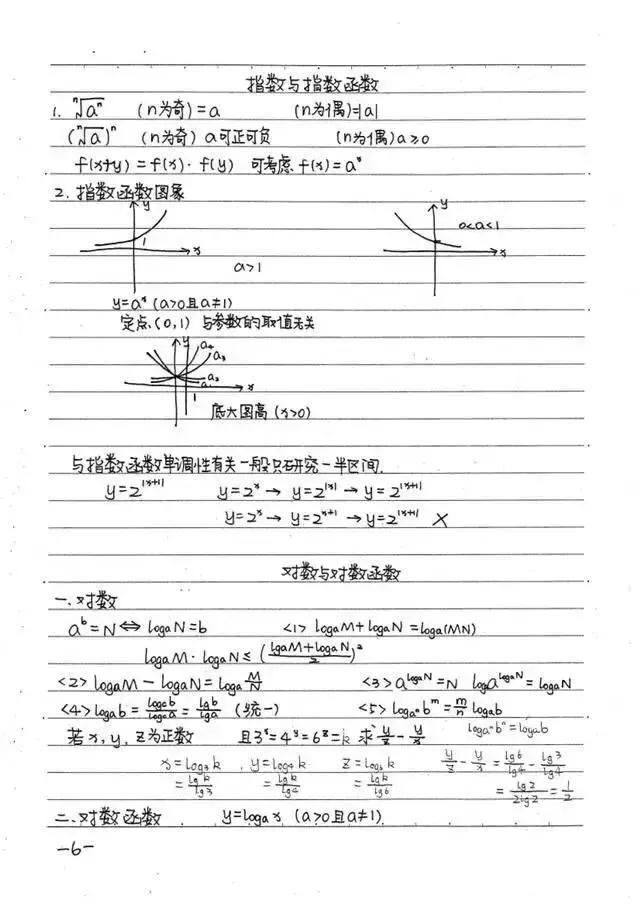 指数与指数函数
1. ⁿ√aⁿ (n为奇)=a (n为偶)=|a|
(ⁿ√a)ⁿ (n为奇) a可正可负 (n为偶) a≥0
f(x+y)=f(x)·f(y) 可考虑 f(x)=aˣ
2. 指数函数图象
y y
1 x 0<a<1 x
a>1
y=aˣ (a>0且a≠1)
定点(0,1) 与参数的取值无关
y a₄ a₃
a₂ a₁ x
1
底大图高(x>0)
与指数函数单调性有关一般只研究一半区间.
y=2^|x+1| y=2ˣ → y=2^|x| → y=2^|x+1|
y=2ˣ → y=2^(x+1) → y=2^|x+1| ×
对数与对数函数
一.对数
aᵇ=N⇔logaN=b <1> logaM+logaN=loga(MN)
logaM·logaN≤((logaM+logaN)/2)²
<2> logaM-logaN=loga(M/N) <3> a^(logaN)=N loga a^(logaN)=logaN
<4> logab=(logcb)/(logca)=(lgb)/(lga) (统一) <5> logaⁿbᵐ=(m/n)logab
logaⁿbⁿ=logab
若x,y,z为正数 且3ˣ=4ʸ=6ᶻ=k 求y/z-y/x
x=log₃k , y=log₄k z=log₆k y/z-y/x=lg6/lg4-lg3/lg4
=lgk/lg3 =lgk/lg4 =lgk/lg6 =lg2/2lg2=1/2
二.对数函数 y=logax (a>0且a≠1)
-6-